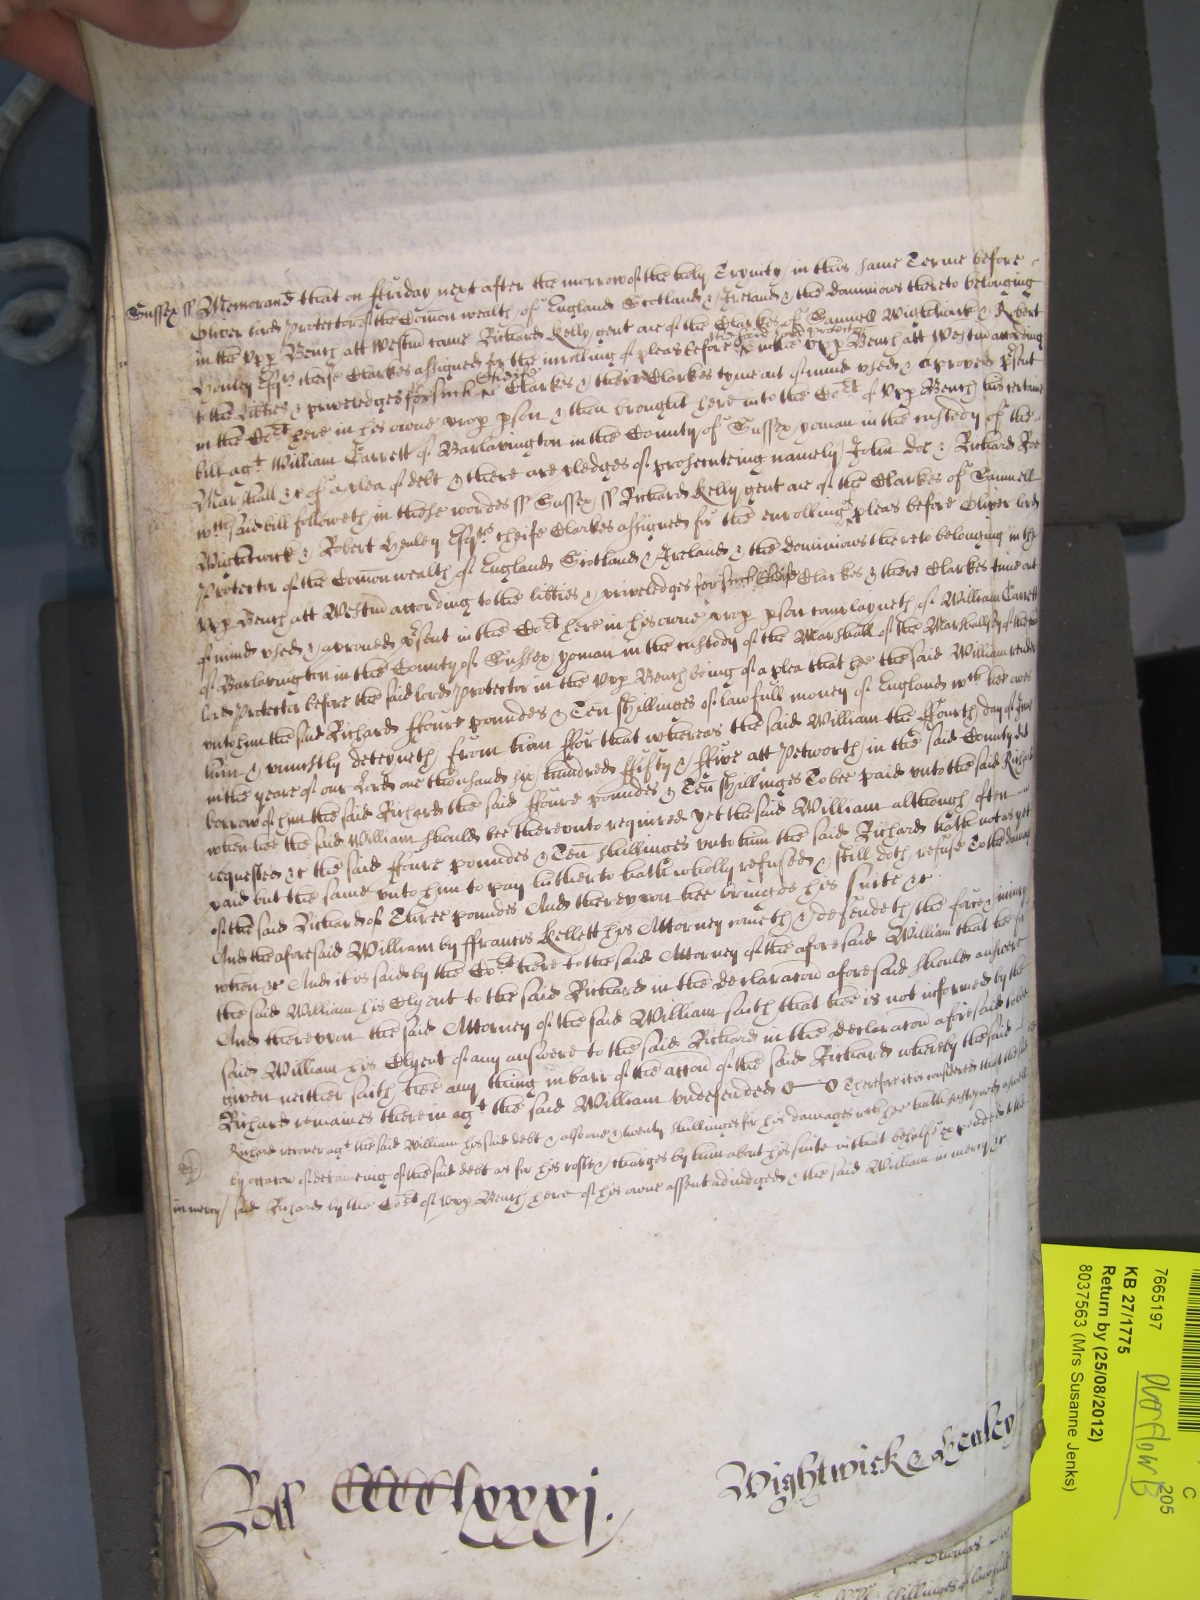 Sussex ss Memorand that on ffriday next after the morrow of the holy Trynity in this same Terme before
Oliver lord Protector of the Comon wealth of England Scotland & Ireland & the dominions thereto belonging
in the vpp Bench att Westm came Richard Kelly gent one of the Clarkes of Samuell Wightwick & Robert
the said lord protector
Henley Esqrs cheife Clarkes assigned for the inrolling of pleas before in the vpp Bench att Westm according
Cheife
to the lib̃ties & priveledges for such Clarkes & there Clarkes tyme out of mind vsed & aproved p̃sent
in the Cort here in his owne prop p̃son & then brought here into the Cort of vpp Bench his certaine
bill agt William Garrett of Barlavington in the County of Sussex yoman in the custody of the
Marshall &c of a plea of debt & there are pledges of prosecuteing namely John Doe & Richard Roe
wch said bill followeth in these wordes ss Sussex ss Richard Kelly gent one of the Clarkes of Samuell
Wightwick & Robert Henley Esqrs cheife Clarkes assigned for the enrolling of pleas before Oliver lord
Protector of the Comonwealth of England Scotland & Ireland & the dominions thereto belonging in the
vpp Bench att Westm according to the lib̃ties & priveledges for such Cheife Clarkes & there Clarkes time out
of mind vsed & aproved p̃sent in the Cort here in his owne prop p̃son complayneth of William Garrett
of Barlavington in the County of Sussex yoman in the custody of the Marshall of the Marshallsey of the said
lord Protector before the said lord Protector in the vpp Bench being of a plea that hee the said William render
vnto him the said Richard ffoure poundes & Ten shillinges of lawfull money of England wch hee owes
him & vniustly deteyneth from him ffor that whereas the said William the ffourth day of June
in the yeare of our Lord one thousand six hundred ffifty & ffive att Petworth in the said County did
borrow of him the said Richard the said ffoure poundes & Ten shillinges To bee paid vnto the said Richard
when hee the said William should bee therevnto required yet the said William although often
requested &c the said ffoure poundes & Ten shillinges vnto him the said Richard hath not as yet
paid but the same vnto him to pay hitherto hath wholly refused & still doth refuse To the damage
of the said Richard of Three poundes And therevpon hee bringes his suite &c
And the aforesaid William by ffrancis Kellett his Attorney cometh & defendeth the force & iniury
when &c And it is said by the Cort here to the said Attorney of the aforesaid William that hee for
the said William his Clyent to the said Richard in the declaracon aforesaid should answere
And therevpon the said Attorney of the said William saith that hee is not informed by the
said William his Clyent of any answere to the said Richard in the declaracon aforesaid to bee
given neither saith hee any thing in barr of the accon of the said Richard whereby the said
Richard remaines therein agt the said William vndefended Therefore it is considered that the said
Richard recover agt the said William his said debt & also one & twenty shillinges for his damages wch hee hath susteyned aswell
by occasion of deteineing of the said debt as for his costes & charges by him about his suite in that behalfe expended to the
in mercy said Richard by the Cort of vpp Bench here of his owne assent adiudged & the said William in mercy &c
Roll CCCClxxxj.
Wightwick & Henley
7665197
KB 27/1775
Return by (25/08/2012)
8037563 (Mrs Susanne Jenks)
C
205
Overflow B